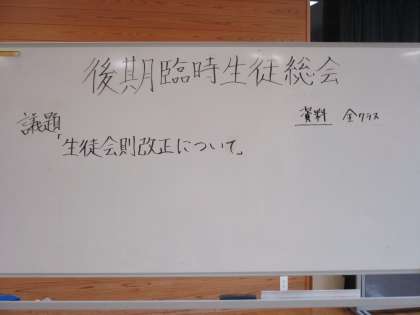 後期臨時生徒総会
議題
「生徒会則改正について」
資料 全クラス